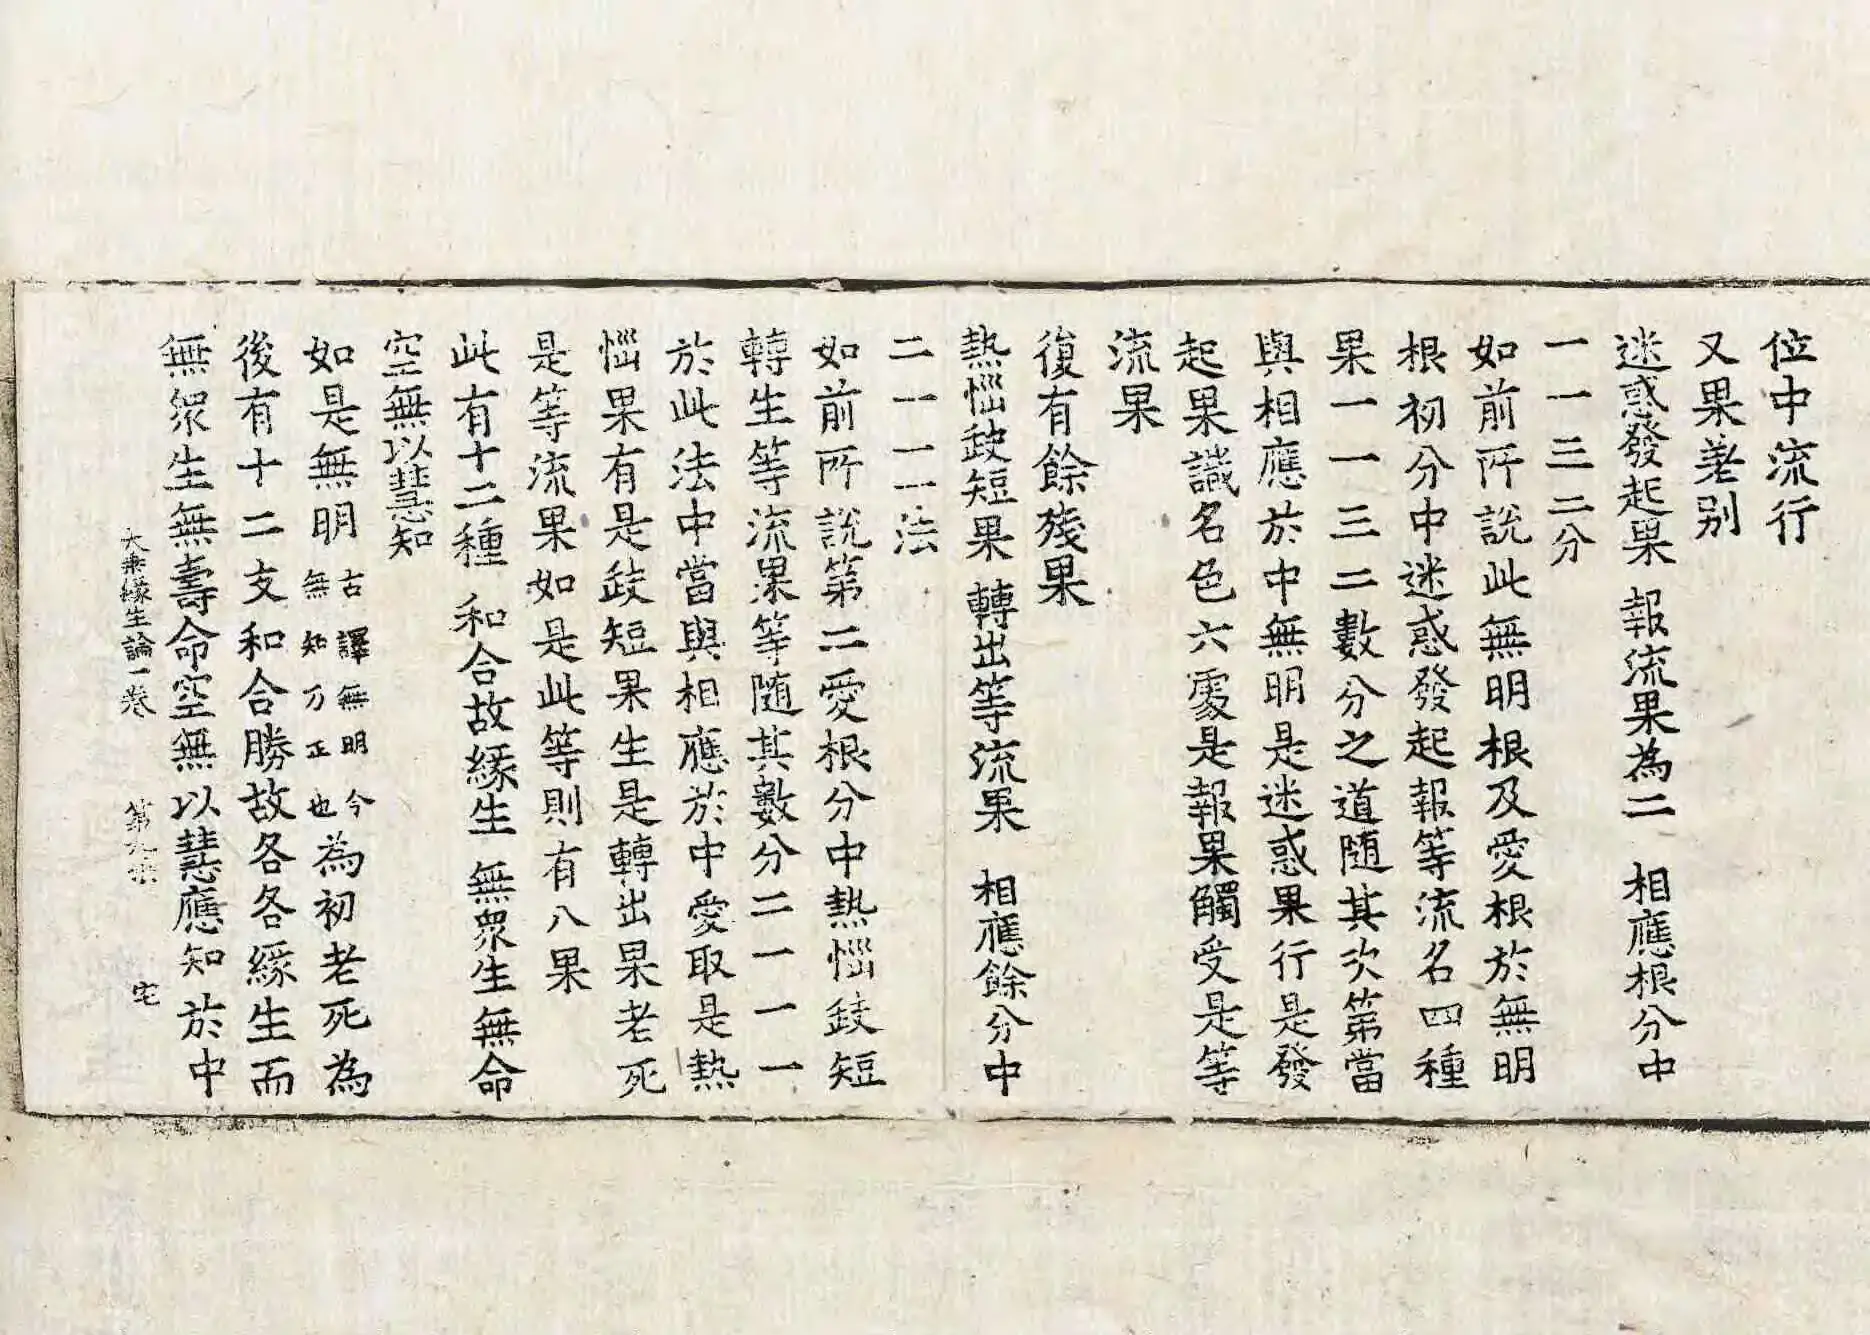 位中流行
又果差别
迷惑發起果 報流果為二 相應根分中
一一三二分
如前所說此無明根及愛根於無明
根初分中迷惑發起報等流名四種
果一一三二數分之道随其次第當
與相應於中無明是迷惑果行是發
起果識名色六處是報果觸受是等
流果
復有餘殘果
熱惱歧短果 轉出等流果 相應餘分中
二一一一法
如前所說第二愛根分中熱惱歧短
轉生等流果等随其數分二一一一
於此法中當與相應於中愛取是熱
惱果有是歧短果生是轉出果老死
是等流果如是此等則有八果
此有十二種 和合故緣生 無眾生無命
空無以慧知
如是無明古譯無明今無知乃正也為初老死為
後有十二支和合勝故各各緣生而
無眾生無壽命空無以慧應知於中
大乘緣生論一卷 第九張 宅